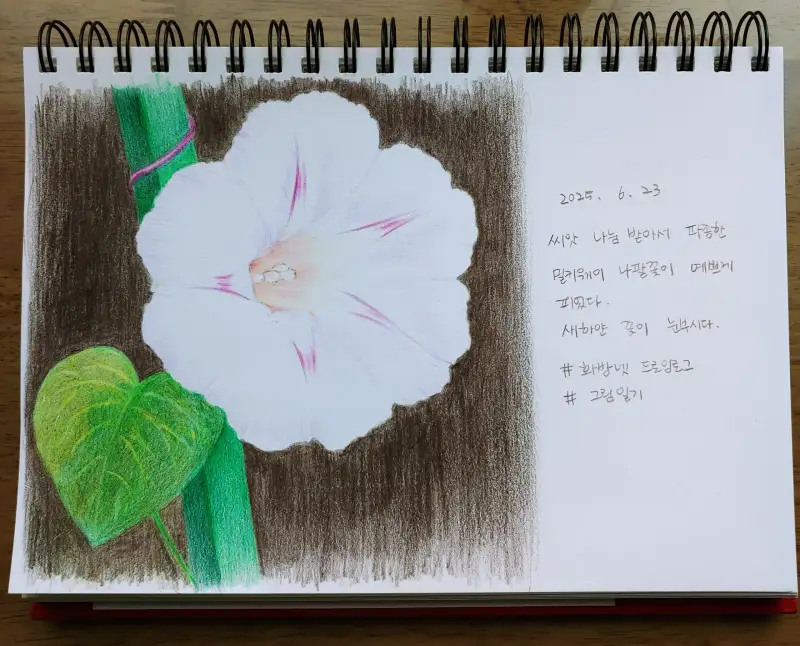 2025. 6. 23
씨앗 나눔 받아서 파종한
밀키웨이 나팔꽃이 예쁘게
피었다.
새하얀 꽃이 눈부시다.
# 화방넷 드로잉로그
# 그림일기